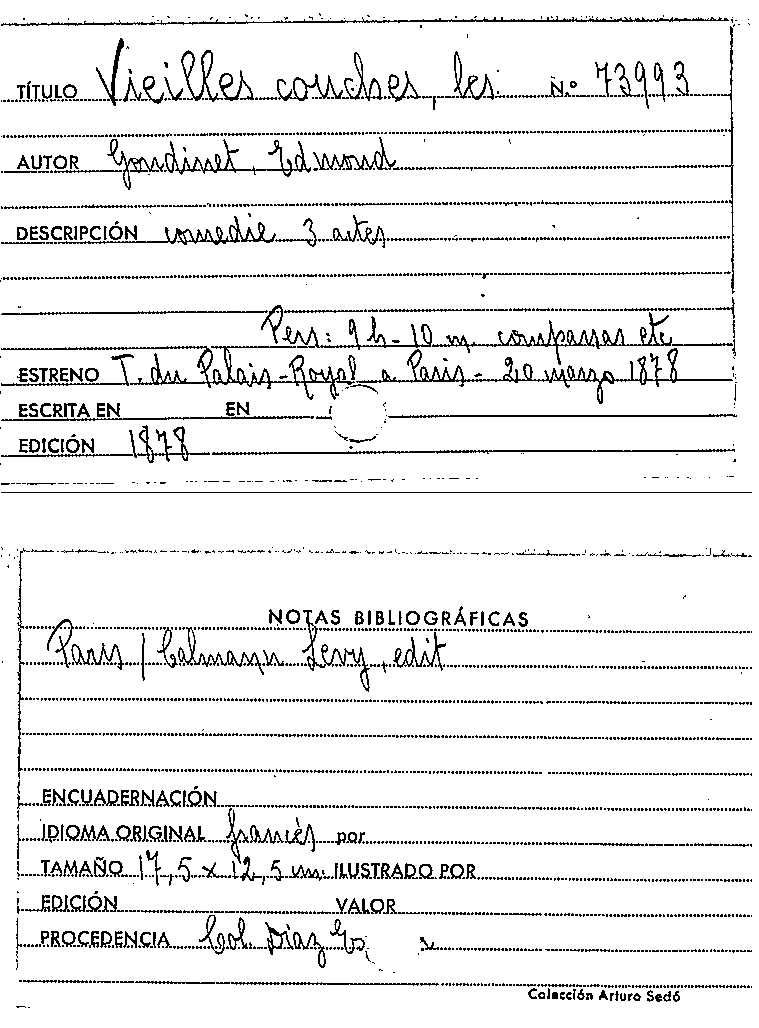 TÍTULO Vieilles couches, les. N.º 73993
AUTOR Gondinet, Edmond
DESCRIPCIÓN comedie 3 actes
Pers: 9 h - 10 m. comparsas etc
ESTRENO T. du Palais-Royal a Paris - 20 marzo 1878
ESCRITA EN EN
EDICIÓN 1878
NOTAS BIBLIOGRÁFICAS
Paris / Calmann Levy, edit
ENCUADERNACIÓN
IDIOMA ORIGINAL francés por
TAMAÑO 17,5 x 12,5 cm. ILUSTRADO POR
EDICIÓN VALOR
PROCEDENCIA Col. Diaz
Colección Arturo Sedó